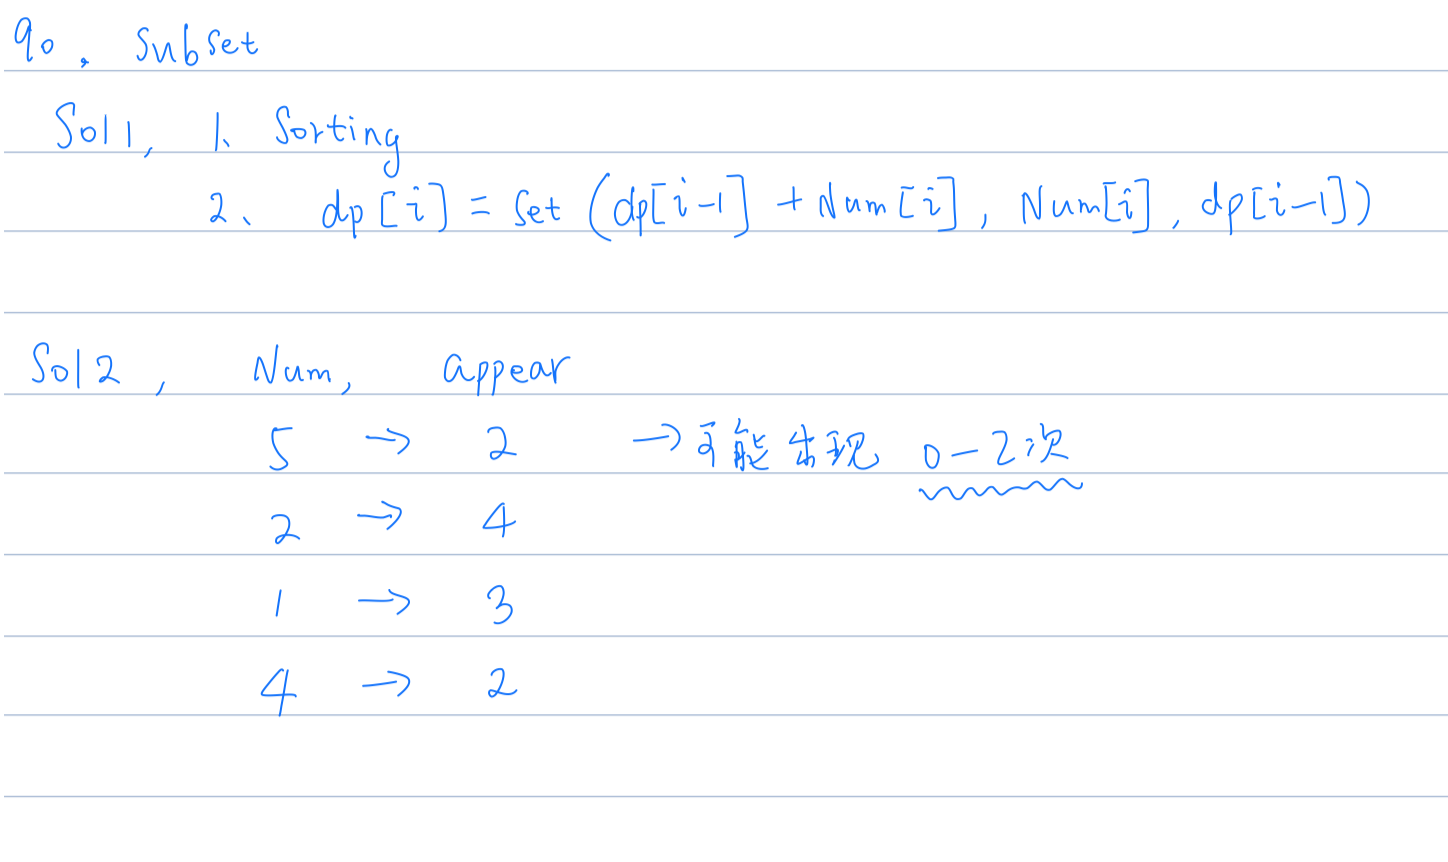 90. Subset
Sol 1, 1、 Sorting
2、 dp[i] = Set (dp[i-1] + Num[i], Num[i], dp[i-1])
Sol 2, Num, appear
5 → 2 → 可能出现 0-2次
2 → 4
1 → 3
4 → 2